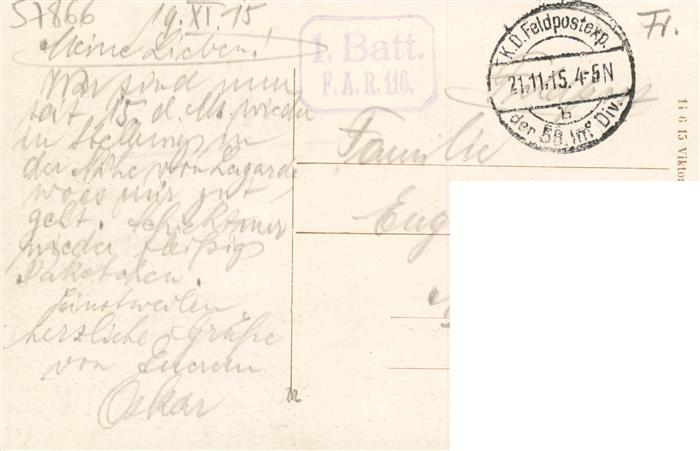 57866 19.XI.15
Meine Lieben!
Wir sind nun
seit 15. d. Ms. wieder
in Stellung in
der Nähe von Lagarde
woes mir gut
geht. schickt mir
wieder fleißig
Paketchen.
Einstweilen
herzliche Grüße
von Eurem
Oskar
1. Batt.
F. A. R. 116.
K.D. Feldpostexp.
21.11.15. 4-5N
b
der 58. Inf. Div.
Fr.
Familie
Eug
11 6 15 Viktor